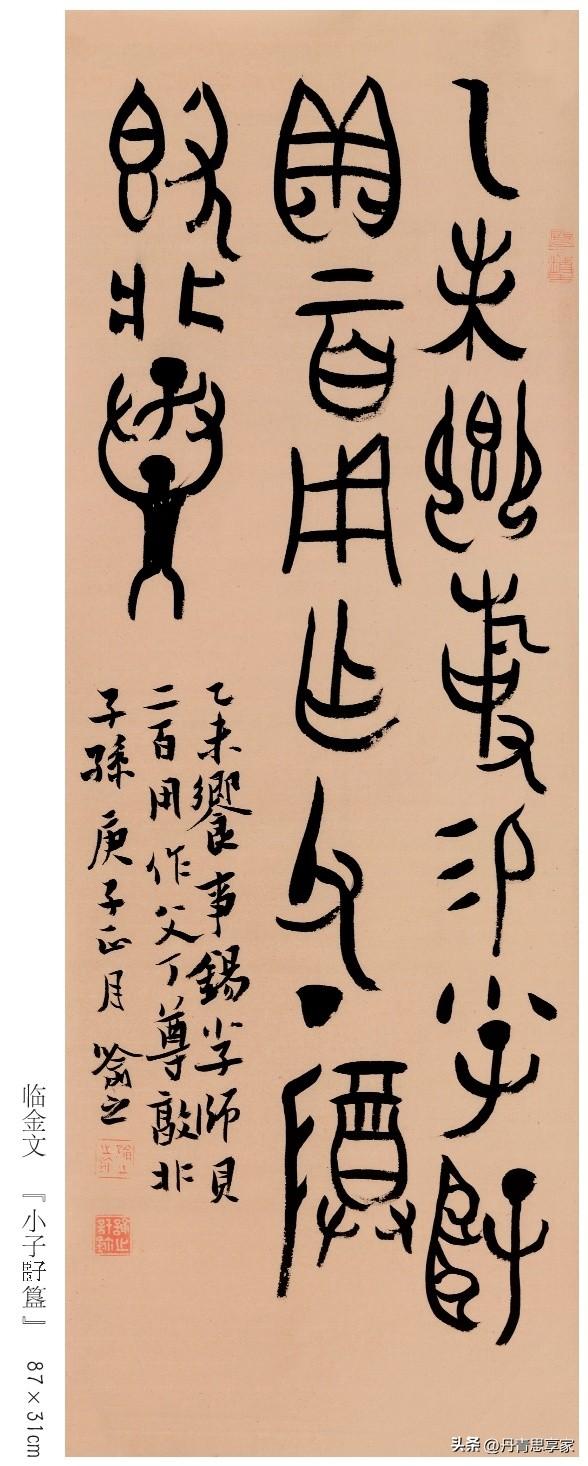 乙未饗事易小子𠂤
貝二百用乍父丁尊
𣪘北子孫
乙未饗事錫小子師貝
二百用作父丁尊敦北
子孫 庚子正月 喻之
临金文 『小子簋』 87×31cm
头条 @丹青思享家